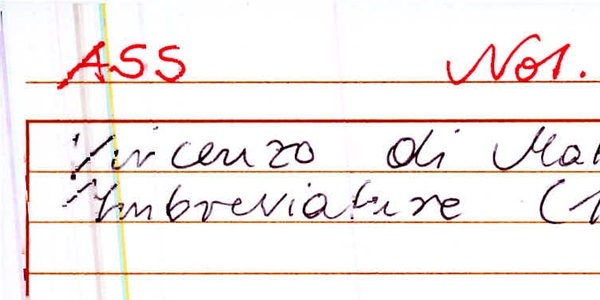 ASS Not.
Vincenzo di
Imbreviature (1